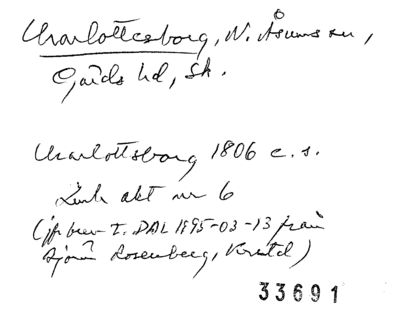 Charlottesborg, N. Åsums sn,
Gärds hd, Sk.
Charlottsborg 1806 e. s.
akt nr 6
(jfr brev t. DAL 1995-03-13 från
Rosenberg, Krstd)
33691